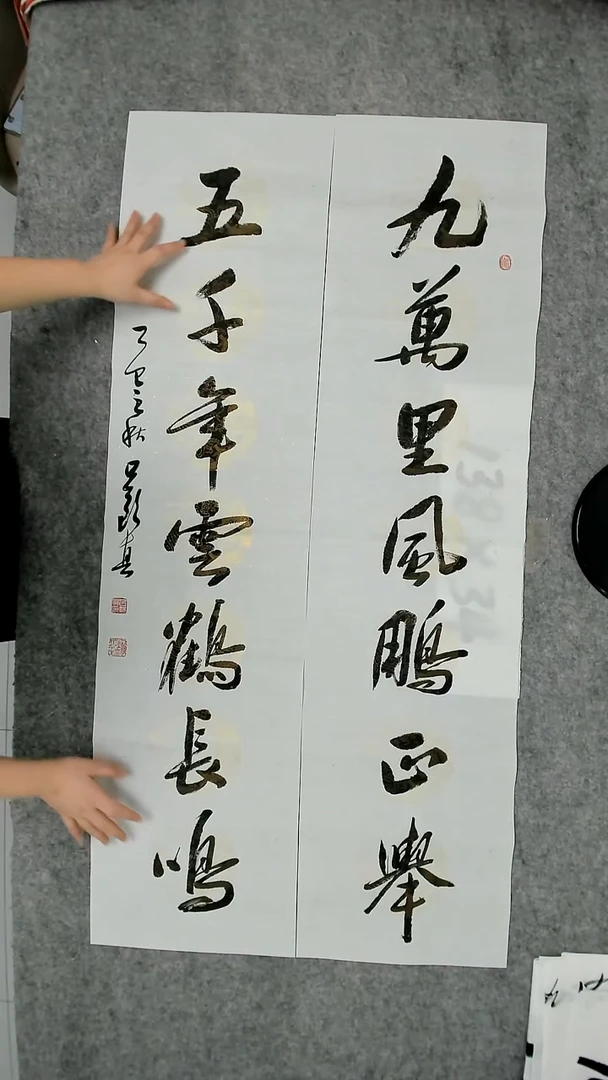 九萬里風鵬正舉
五千年雲鶴長鳴
乙巳之秋
138×34